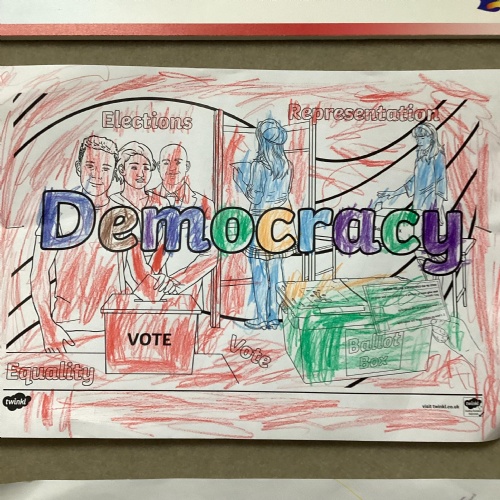 Elections
Representation
Democracy
VOTE
Vote
Ballot
Box
Equality
twinkl
visit twinkl.co.uk
twinkl